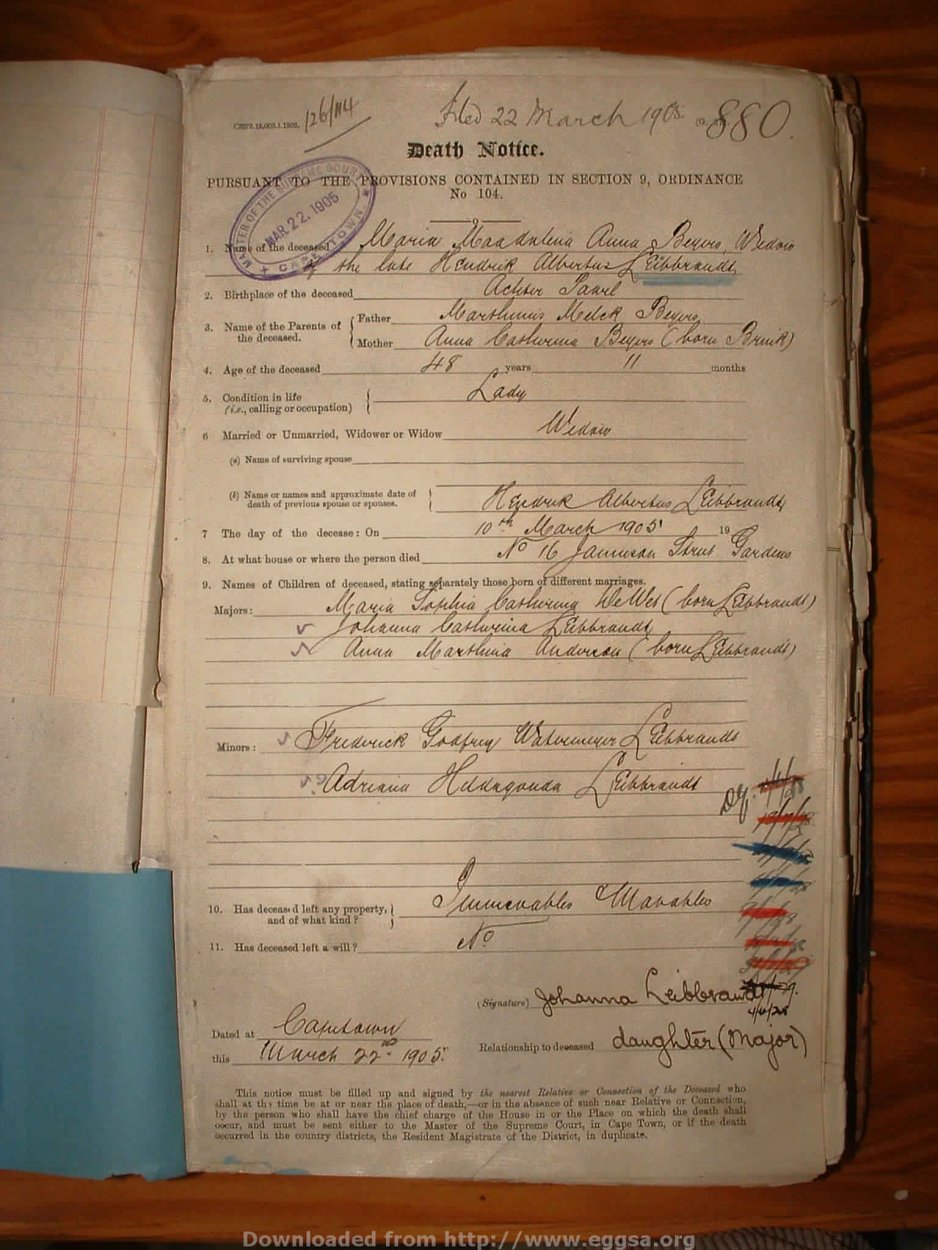 C2573.18,000.1.1902. 126/114
Filed 22 March 1905. 880.
Death Notice.
PURSUANT TO THE PROVISIONS CONTAINED IN SECTION 9, ORDINANCE
No 104.
MASTER OF THE SUPREME COURT
MAR. 22. 1905
CAPE TOWN
1. Name of the deceased Maria Magdalena Anna Beyers, Widow
of the late Hendrik Albertus Leibbrandt
2. Birthplace of the deceased Achter Paarl
3. Name of the Parents of the deceased. Father Marthinus Melck Beyers
Mother Anna Catherina Beyers (born Brink)
4. Age of the deceased 48 years 11 months
5. Condition in life Lady
(i.e., calling or occupation)
6 Married or Unmarried, Widower or Widow Widow
(a) Name of surviving spouse
(b) Name or names and approximate date of
death of previous spouse or spouses. Hendrik Albertus Leibbrandt
7 The day of the decease: On 10th March 1905 19
8. At what house or where the person died No 16 Jamieson Street Gardens
9. Names of Children of deceased, stating separately those born of different marriages.
Majors: Maria Sophia Catherina De Wet (born Leibbrandt)
Johanna Catherina Leibbrandt
Anna Marthina Anderson (born Leibbrandt)
Minors: Frederick Godfrey Watermeyer Leibbrandt
Adriana Hildagonda Leibbrandt
10. Has deceased left any property, and of what kind? Immovables & Movables
11. Has deceased left a will? No
(Signature) Johanna Leibbrandt
4/6/28
Dated at Capetown
this March 22nd 1905
Relationship to deceased daughter (Major)
This notice must be filled up and signed by the nearest Relative or Connection of the Deceased who
shall at the time be at or near the place of death,—or in the absence of such near Relative or Connection,
by the person who shall have the chief charge of the House in or the Place on which the death shall
occur, and must be sent either to the Master of the Supreme Court, in Cape Town, or if the death
occurred in the country districts, the Resident Magistrate of the District, in duplicate.
Downloaded from http://www.eggsa.org